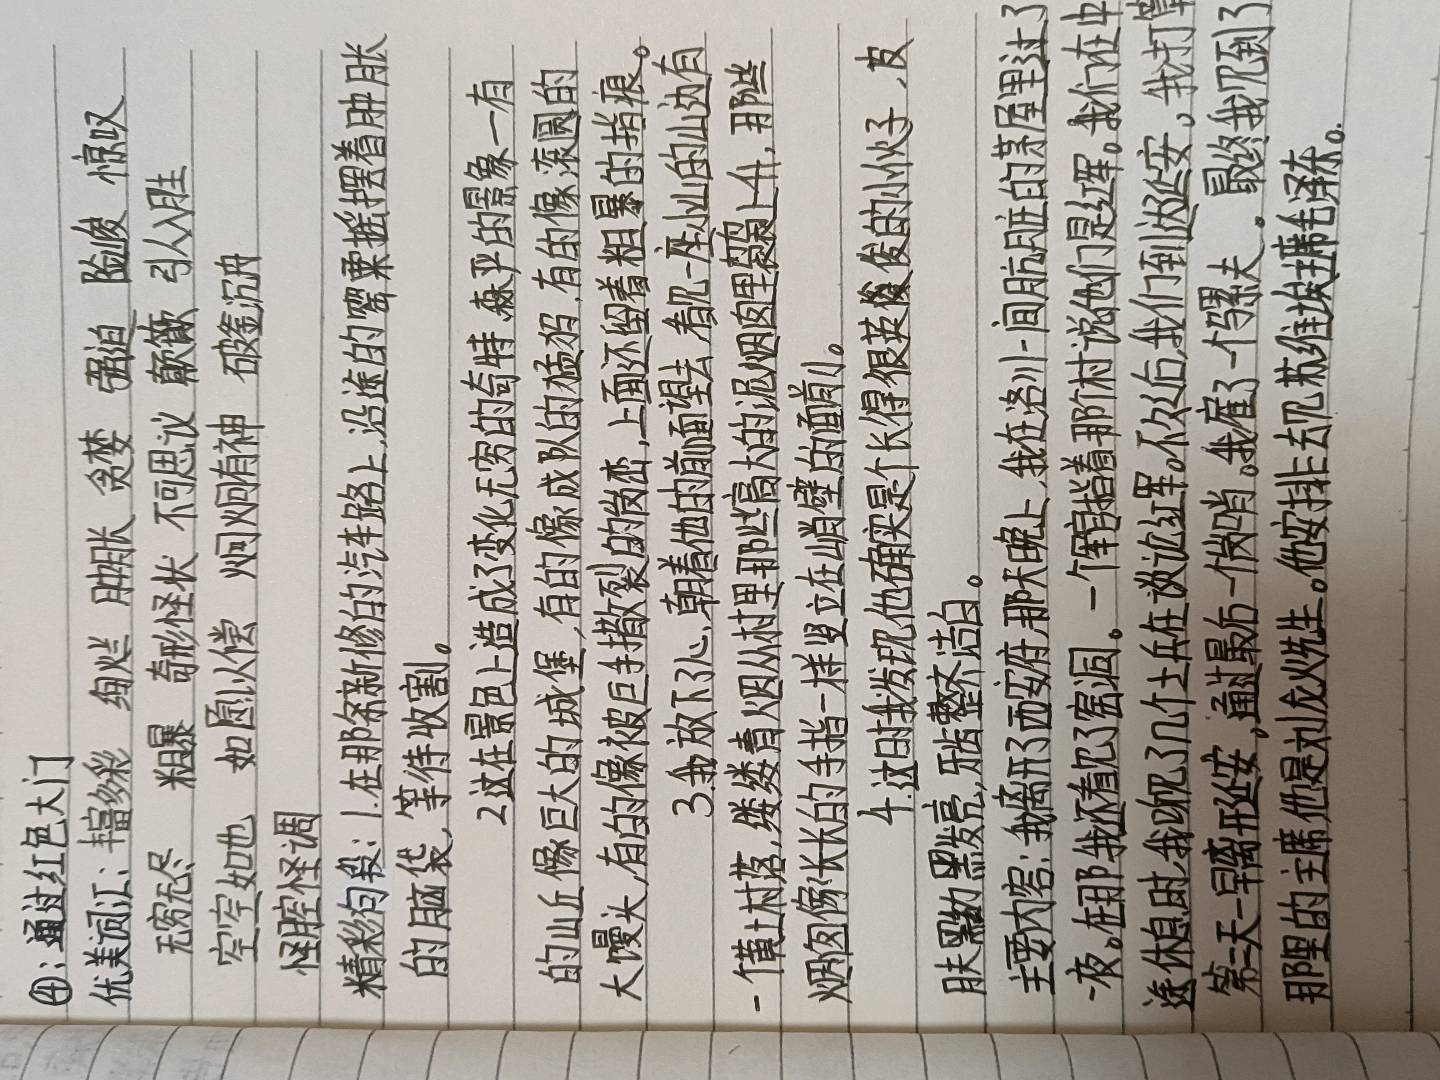 ④：通过红色大门
优美词汇：丰富多彩 绚烂 肿胀 贪婪 强迫 险峻 惊叹
无穷无尽 粗暴 奇形怪状 不可思议 歉歉 引人入胜
空空如也 如愿以偿 炯炯有神 破釜沉舟
怪腔怪调
精彩句段：1.在那条新修的汽车路上，沿途的罂粟摇摆着肿胀
的脑袋，等待收割。
2.这在景色上造成了变化无穷的奇特、森严的景象一有
的山丘像巨大的城堡，有的像成队的猛犸，有的像滚圆的
大馒头，有的像被巨手撒裂的岗峦，上面还留着粗暴的指痕。
3.我放下了心，朝着他的前面望去，看见一座小山的山边有
一个黄土村落，缕缕青烟从村里那些高大的泥烟囱里袅袅上升，那些
烟囱像长长的手指一样竖立在峭壁的面前。
4.这时我发现他确实是个长得很英俊的小伙子，皮
肤黝黑发亮，牙齿整齐洁白。
主要内容：我离开了西安府，那天晚上，我在洛川一间肮脏的茅屋里过了
一夜。在那我还看见了窑洞。一个军官指着那个村说他们是红军。我们在中
途休息时，我听见了几个士兵在谈论红军。不久后，我们到达延安。我打算
第二天一早离开延安，通过最后一个岗哨。我雇了一个骡夫。最终我见到了
那里的主席，他是刘龙火先生。他安排去见苏维埃主席毛泽东。